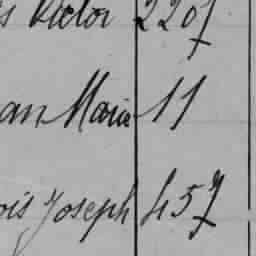 s Victor 2207
an Maria 11
ois Joseph 457